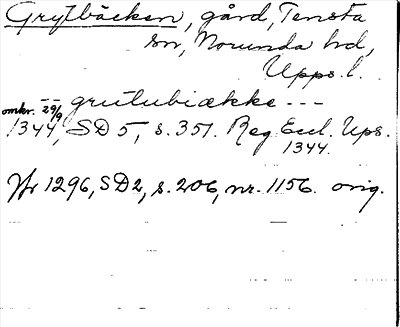 Grytbäcken, gård, Tensta
sn, Norunda hd,
Upps. l.
-- grutubiække ---
omkr. 29/9
1344, SD 5, s. 351. Reg. Eccl. Ups.
1344.
Nr 1296, SD 2, s. 206, nr. 1156. orig.